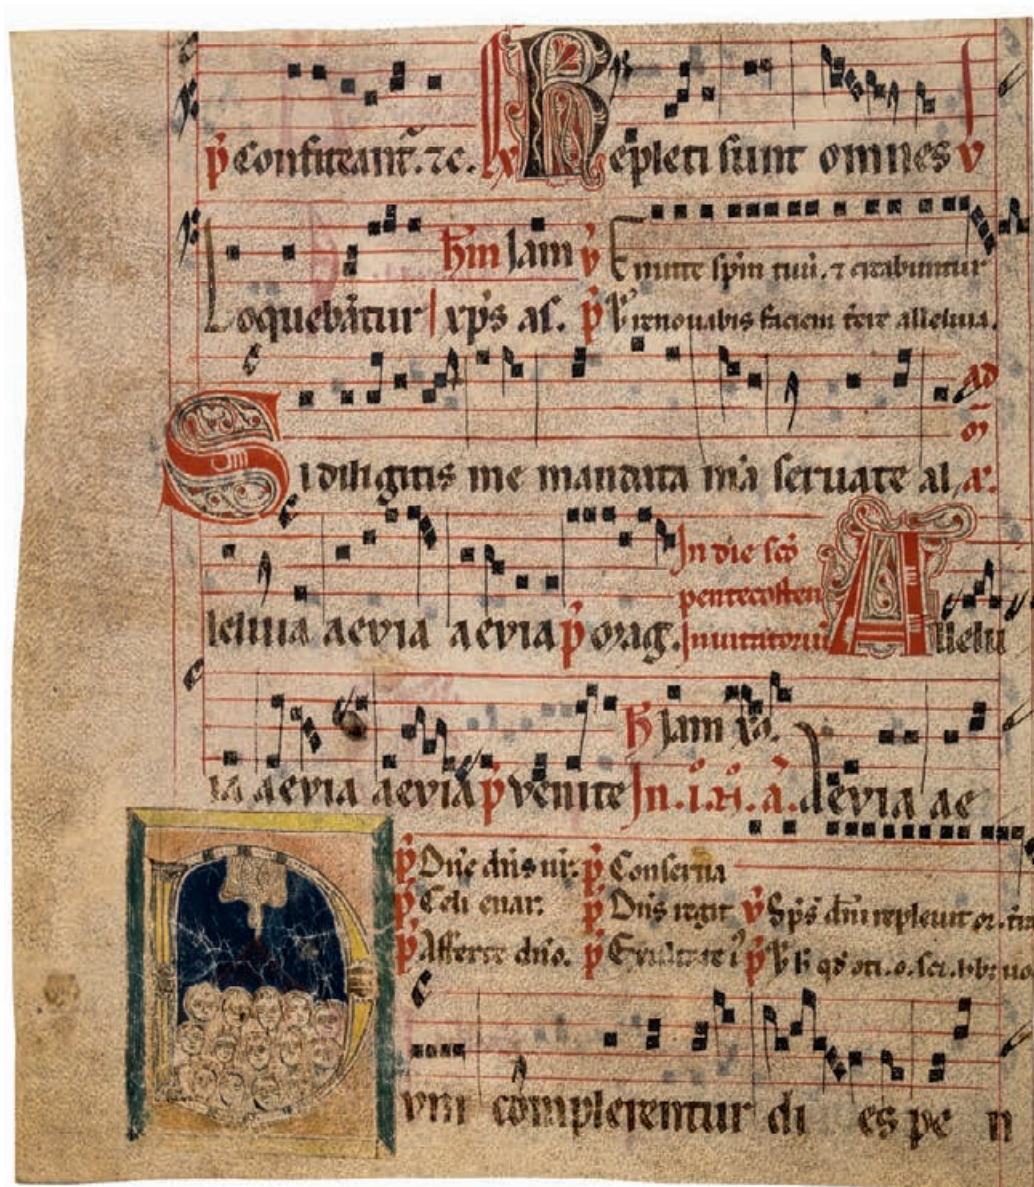 p̄ Confiteant̄. ⁊c. Repleti sunt omnes v
hm̄ Jam v̄ Emitte sp̄m tuū. ⁊ creabuntur
Loquebātur xp̄s al. p̄ renouabis faciem terre alleluia.
ad
Si diligitis me mandata mā seruate al
leluia aevia aevia p̄ mag. In die scō pentecosten Inuitatoriū Allelu
h̄ Jam xp̄.
ia aevia aevia p̄ venite In .i. N̄. ā. Aevia ae
p̄ Dn̄e dn̄s nr̄. p̄ Conserua
p̄ Celi enar. p̄ Dn̄s regit v̄ Sp̄s dn̄i repleuit or. t̄ra
p̄ Afferte dn̄o. p̄ Exultate
Dum complerentur di es pe n